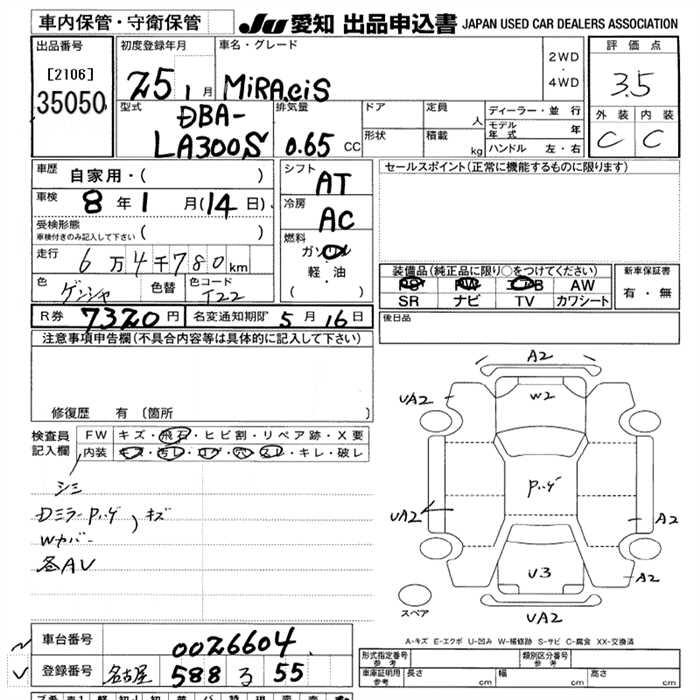 車内保管・守衛保管 JU 愛知 出品申込書 JAPAN USED CAR DEALERS ASSOCIATION
出品番号
[2106]
35050
初度登録年月 25 1月
車名・グレード MiRA.eiS
2WD
・
4WD
評価点
3.5
外装 内装
C C
型式 DBA-
LA300S
排気量 0.65 CC
ドア
形状
定員 人
積載 kg
ディーラー・並行
モデル年式 年
ハンドル 左・右
車歴 自家用・( )
車検 8年 1月(14日)
受検形態
車検付きのみ記入して下さい ( )
走行 6万4千780km
色 ゲンシャ 色替 色コード T22
シフト AT
冷房 AC
燃料
ガソリン
軽・油
( )
セールスポイント(正常に機能するものに限ります)
装備品(純正品に限り○をつけてください)
PS PW エアB AW
SR ナビ TV カワシート
新車保証書
有・無
R券 7320円 名変通知期限 5月16日
後日品
注意事項申告欄(不具合内容等は具体的に記入して下さい)
修復歴 有(箇所 )
検査員
記入欄
FW キズ・飛石・ヒビ割・リペア跡・X要
内装 キズ・汚レ・コゲ・穴・スレ・キレ・破レ
シミ
Dミラー Pハゲ キズ
Wカバー
各AU
A2
UA2
W2
Pハゲ
UA2
A2
A2
U3
UA2
スペア
A-キズ E-エクボ U-凹み W-補修跡 S-サビ C-腐食 XX-交換済
車台番号 0026604
登録番号 名古屋 588 ろ 55
形式指定番号
参考
類別区分番号
参考
車庫証明用
参考
長さ cm 幅 cm 高さ cm